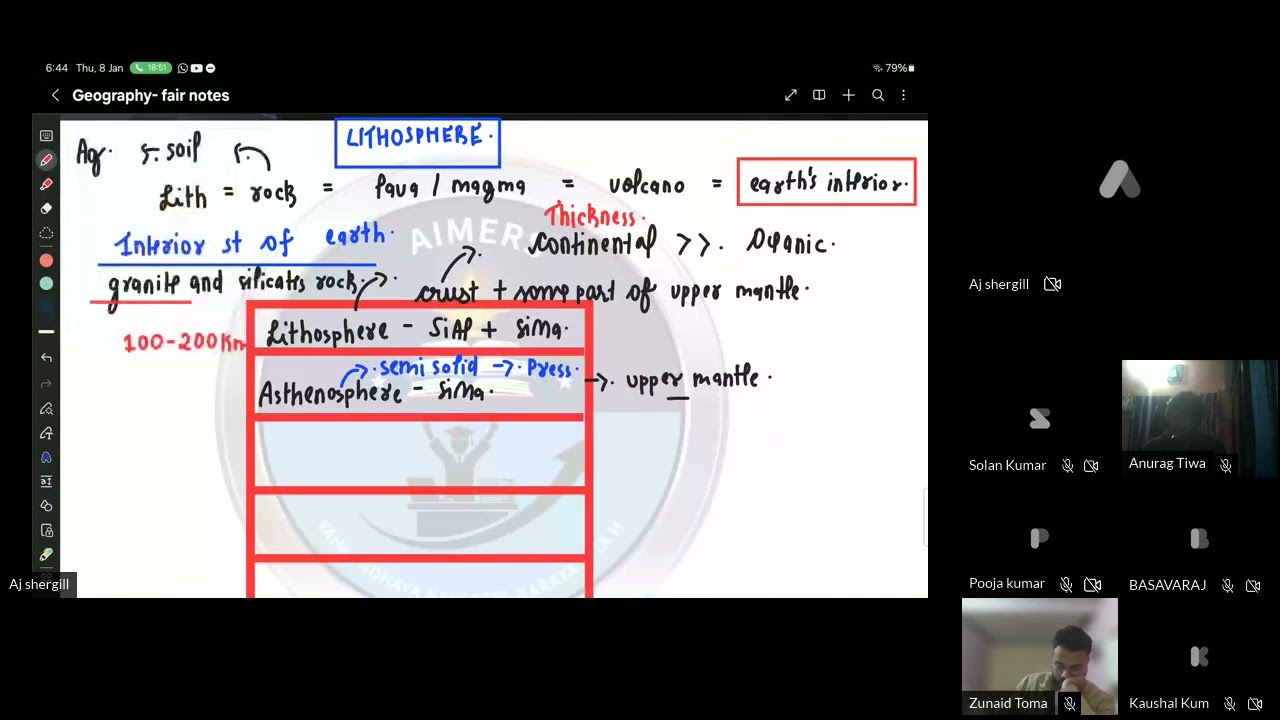 6:44 Thu, 8 Jan 18:51 79%
Geography- fair notes
LITHOSPHERE.
Ag. 5. soil
Lith = rock = lava / magma = volcano = earth's interior.
Thickness.
Interior st of earth. continental >>.
granite and silicates rock. crust + some part of upper mantle.
100-200Km Lithosphere - SiAl + SiMa.
semi solid → Press.
Asthenosphere - SiMa. → upper mantle.
AIMERS
Aj shergill
Aj shergill
Solan Kumar
Anurag Tiwa
Pooja kumar
BASAVARAJ
Zunaid Toma
Kaushal Kum